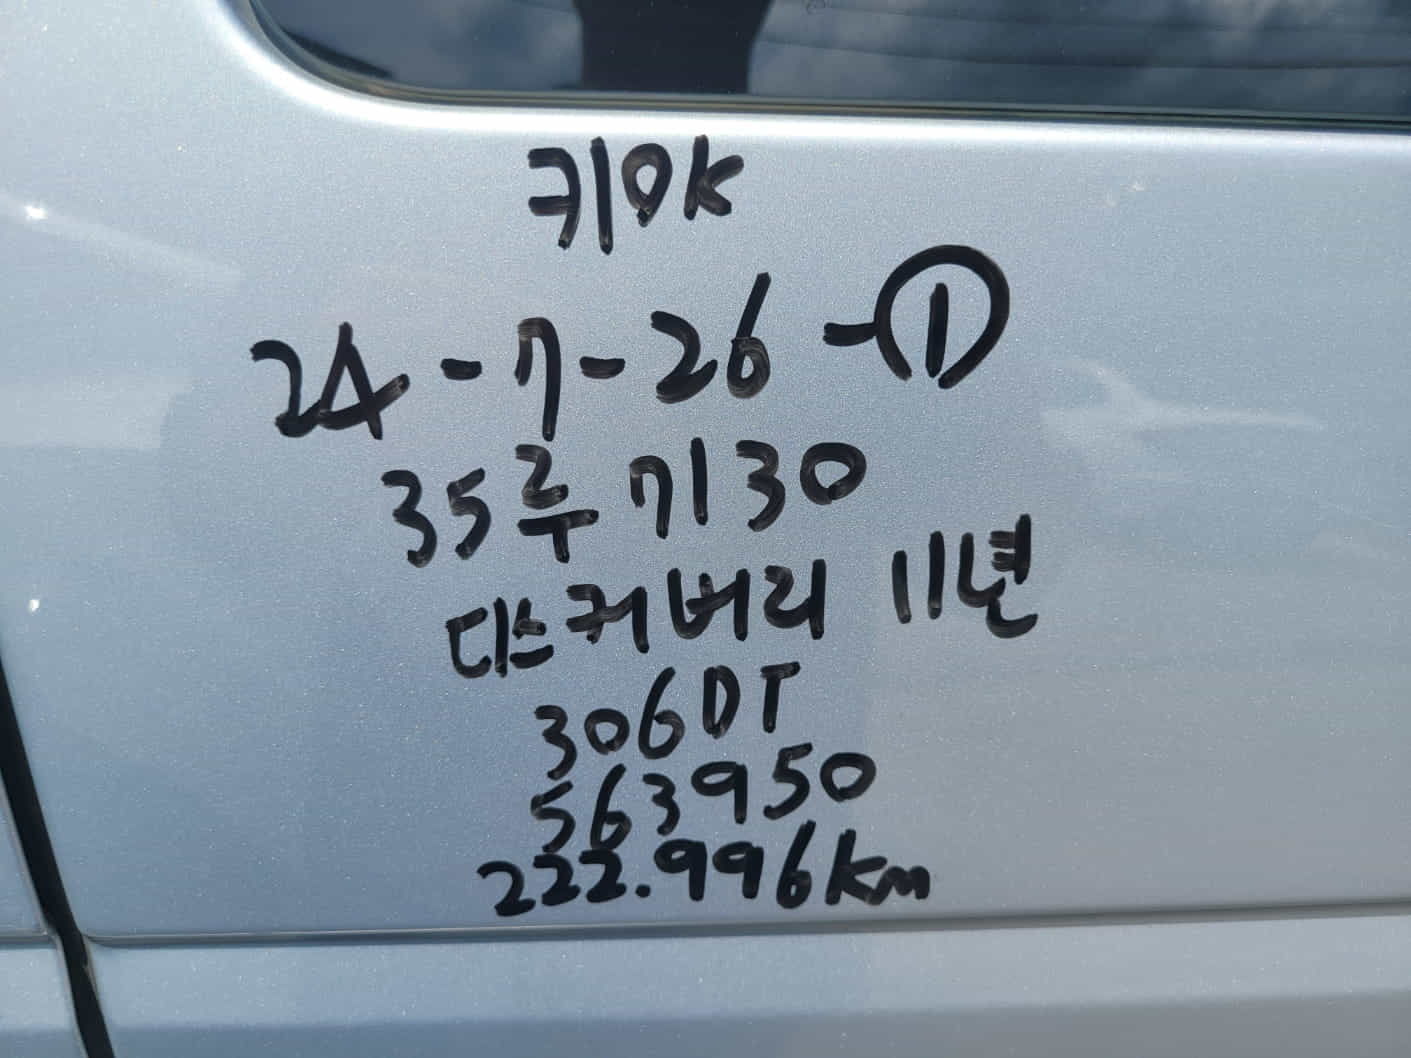 키OK
24-7-26-①
35루 7130
디스커버리 11년
306DT
563950
222.996km